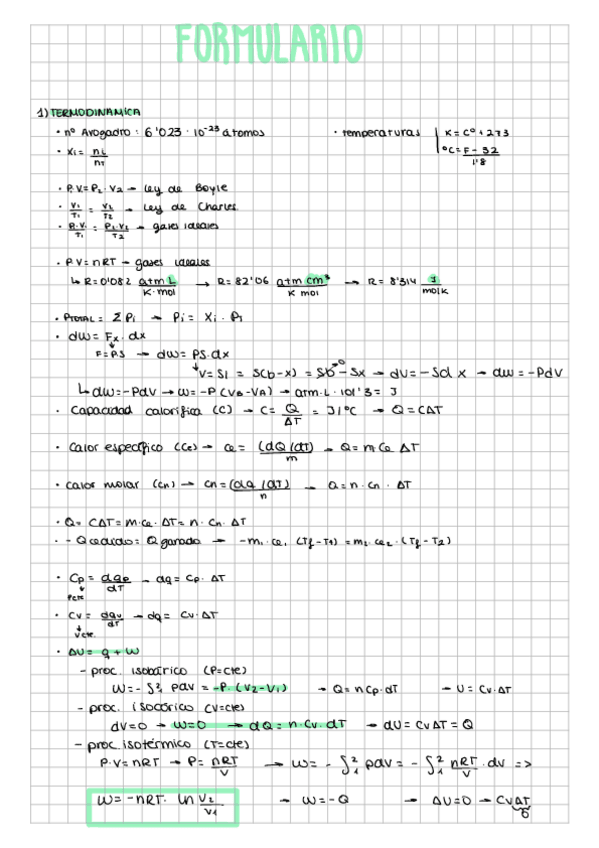 FORMULARIO
1) TERMODINAMICA
· nº Avogadro : 6'023 · 10⁻²³ átomos · temperaturas | K = Cº + 273
· Xi = ni / nT | ºC = F - 32 / 1'8
· P₁V₁ = P₂ · V₂ → Ley de Boyle
· V₁/T₁ = V₂/T₂ → Ley de Charles
· P₁·V₁/T₁ = P₂·V₂/T₂ → gases ideales
· P.V = nRT → gases ideales
↳ R = 0'082 atm L / K·mol → R = 82'06 atm cm³ / K mol → R = 8'314 J / mol K
· PTOTAL = Σ Pi → Pi = Xi · PT
· dW = Fx · dx
F = P.S → dW = PS·dx
V = Sl = S(b-x) = Sb→0 - Sx → dV = -Sd x → dW = -PdV
↳ dW = -PdV → W = -P (VB - VA) → atm·L · 101'3 = J
· Capacidad calorífica (C) → C = Q / ΔT = J/ºC → Q = CΔT
· Calor específico (Ce) → ce = (dQ/dT) / m → Q = m Ce ΔT
· Calor molar (Cn) → Cn = (dq/dT) / n → Q = n · Cn · ΔT
· Q = CΔT = m·ce · ΔT = n · Cn · ΔT
· - Q cedido = Q ganado → -m₁ · ce₁ (Tf - T1) = m₂ · ce₂ · (Tf - T2)
· Cp = dqp / dT → dq = Cp · ΔT
↓
Pcte
· CV = dqv / dT → dq = CV · ΔT
↓
Vcte.
· ΔU = q + W
- proc. isobárico (P=cte)
W = - ∫²₁ PdV = -P · (V2 - V1) → Q = n Cp · dT → U = Cv · ΔT
- proc. isocórico (V=cte)
dV = 0 → W = 0 → dQ = n · Cv · dT → dU = CVΔT = Q
- proc. isotérmico (T=cte)
P·V = nRT → P = nRT / V → W = - ∫²₁ PdV = - ∫²₁ nRT / V · dV =>
W = -nRT · ln V2 / V1 → W = -Q → ΔU = 0 → CVΔT
0